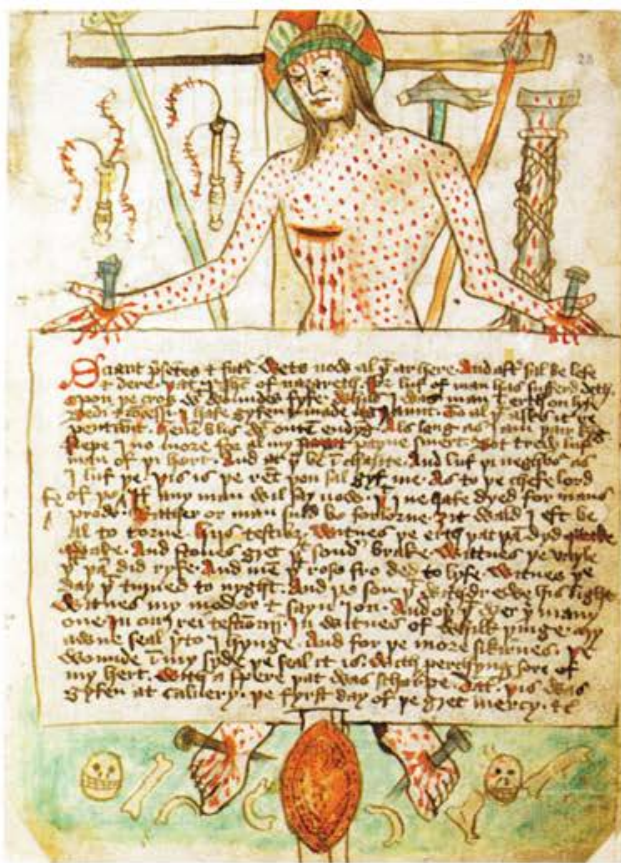 23
Sciant p'sentes & futi' Wets now al þt ar here. And aft' sal be lefe
& dere. þat I ihc of nazareth. ffor luf of man has sufferd deth.
vpon þe cros wt woundes fyfe. Whils I was man in erth on lyfe
I hafe gyfen & made
penitent. Heuē blis wt outē endyng. Als long as I am þair kyng
Kepe I no more for al my payne smert. Bot trew luf
man of þi hert. And at þu be in charite. And luf þi neghbor as
I luf þe. þis is þe rent þou sal gyf me. As to þe chefe lord
of þe fe. If any man wil say now. þt I ne hafe dyed for mans
prow. Rather or man suld be forlorne. ȝit wald I eft be
al to torne. hiis testibȝ Witnes þe erth þat þan dyd qwake
And stones gret þt sondyr brake. Wittnes þe vayle
þt þan did ryfe. And men þt rose fro ded to lyfe. Witnes þe
day þt turned to nyght. And þe son þt withdrewe his light
Witnes my moder & saynt Ion. And oþer þt wer þer many
one. In cuius rei testimonium. In witnes of whilk þinge. my
awne seal þerto I hynge. And for þe more sikirnes. þe
wounde in my syde þe seal it is. With perchyng sore of
my hert. With a spere þat was scharpe. Dat. þis was
gyfen at caluery. þe fyrst day of þe gret mercy. &c